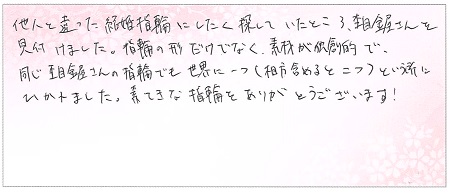 他人と違った結婚指輪にしたく探していたところ、杢目屋さんを
見付けました。指輪の形だけでなく、素材が独創的で、
同じ杢目屋さんの指輪でも世界に一つ(相方含めると二つ)という所に
ひかれました。素てきな指輪をありがとうございます!